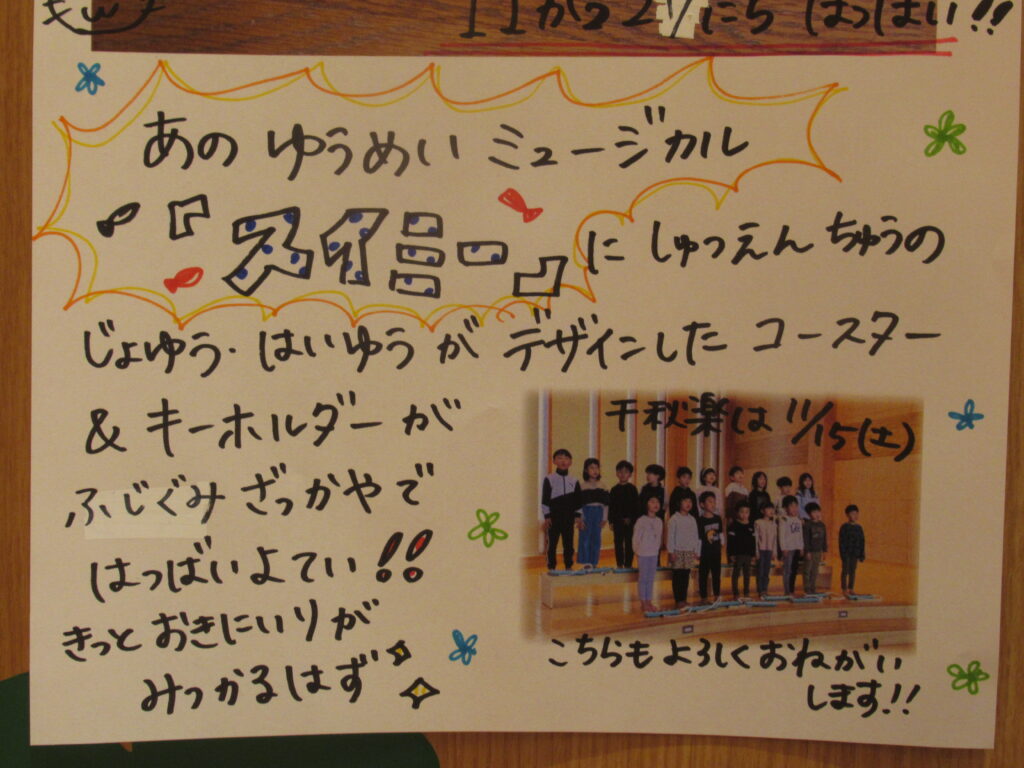 11がつ21にち はつばい!!
あの ゆうめい ミュージカル
『スイミー』に しゅつえんちゅうの
じょゆう・はいゆうが デザインした コースター
& キーホルダーが
ふじぐみ ざっかやで
はつばいよてい!!
きっと おきにいりが
みつかるはず
千秋楽は 11/15(土)
こちらも よろしく おねがい
します!!